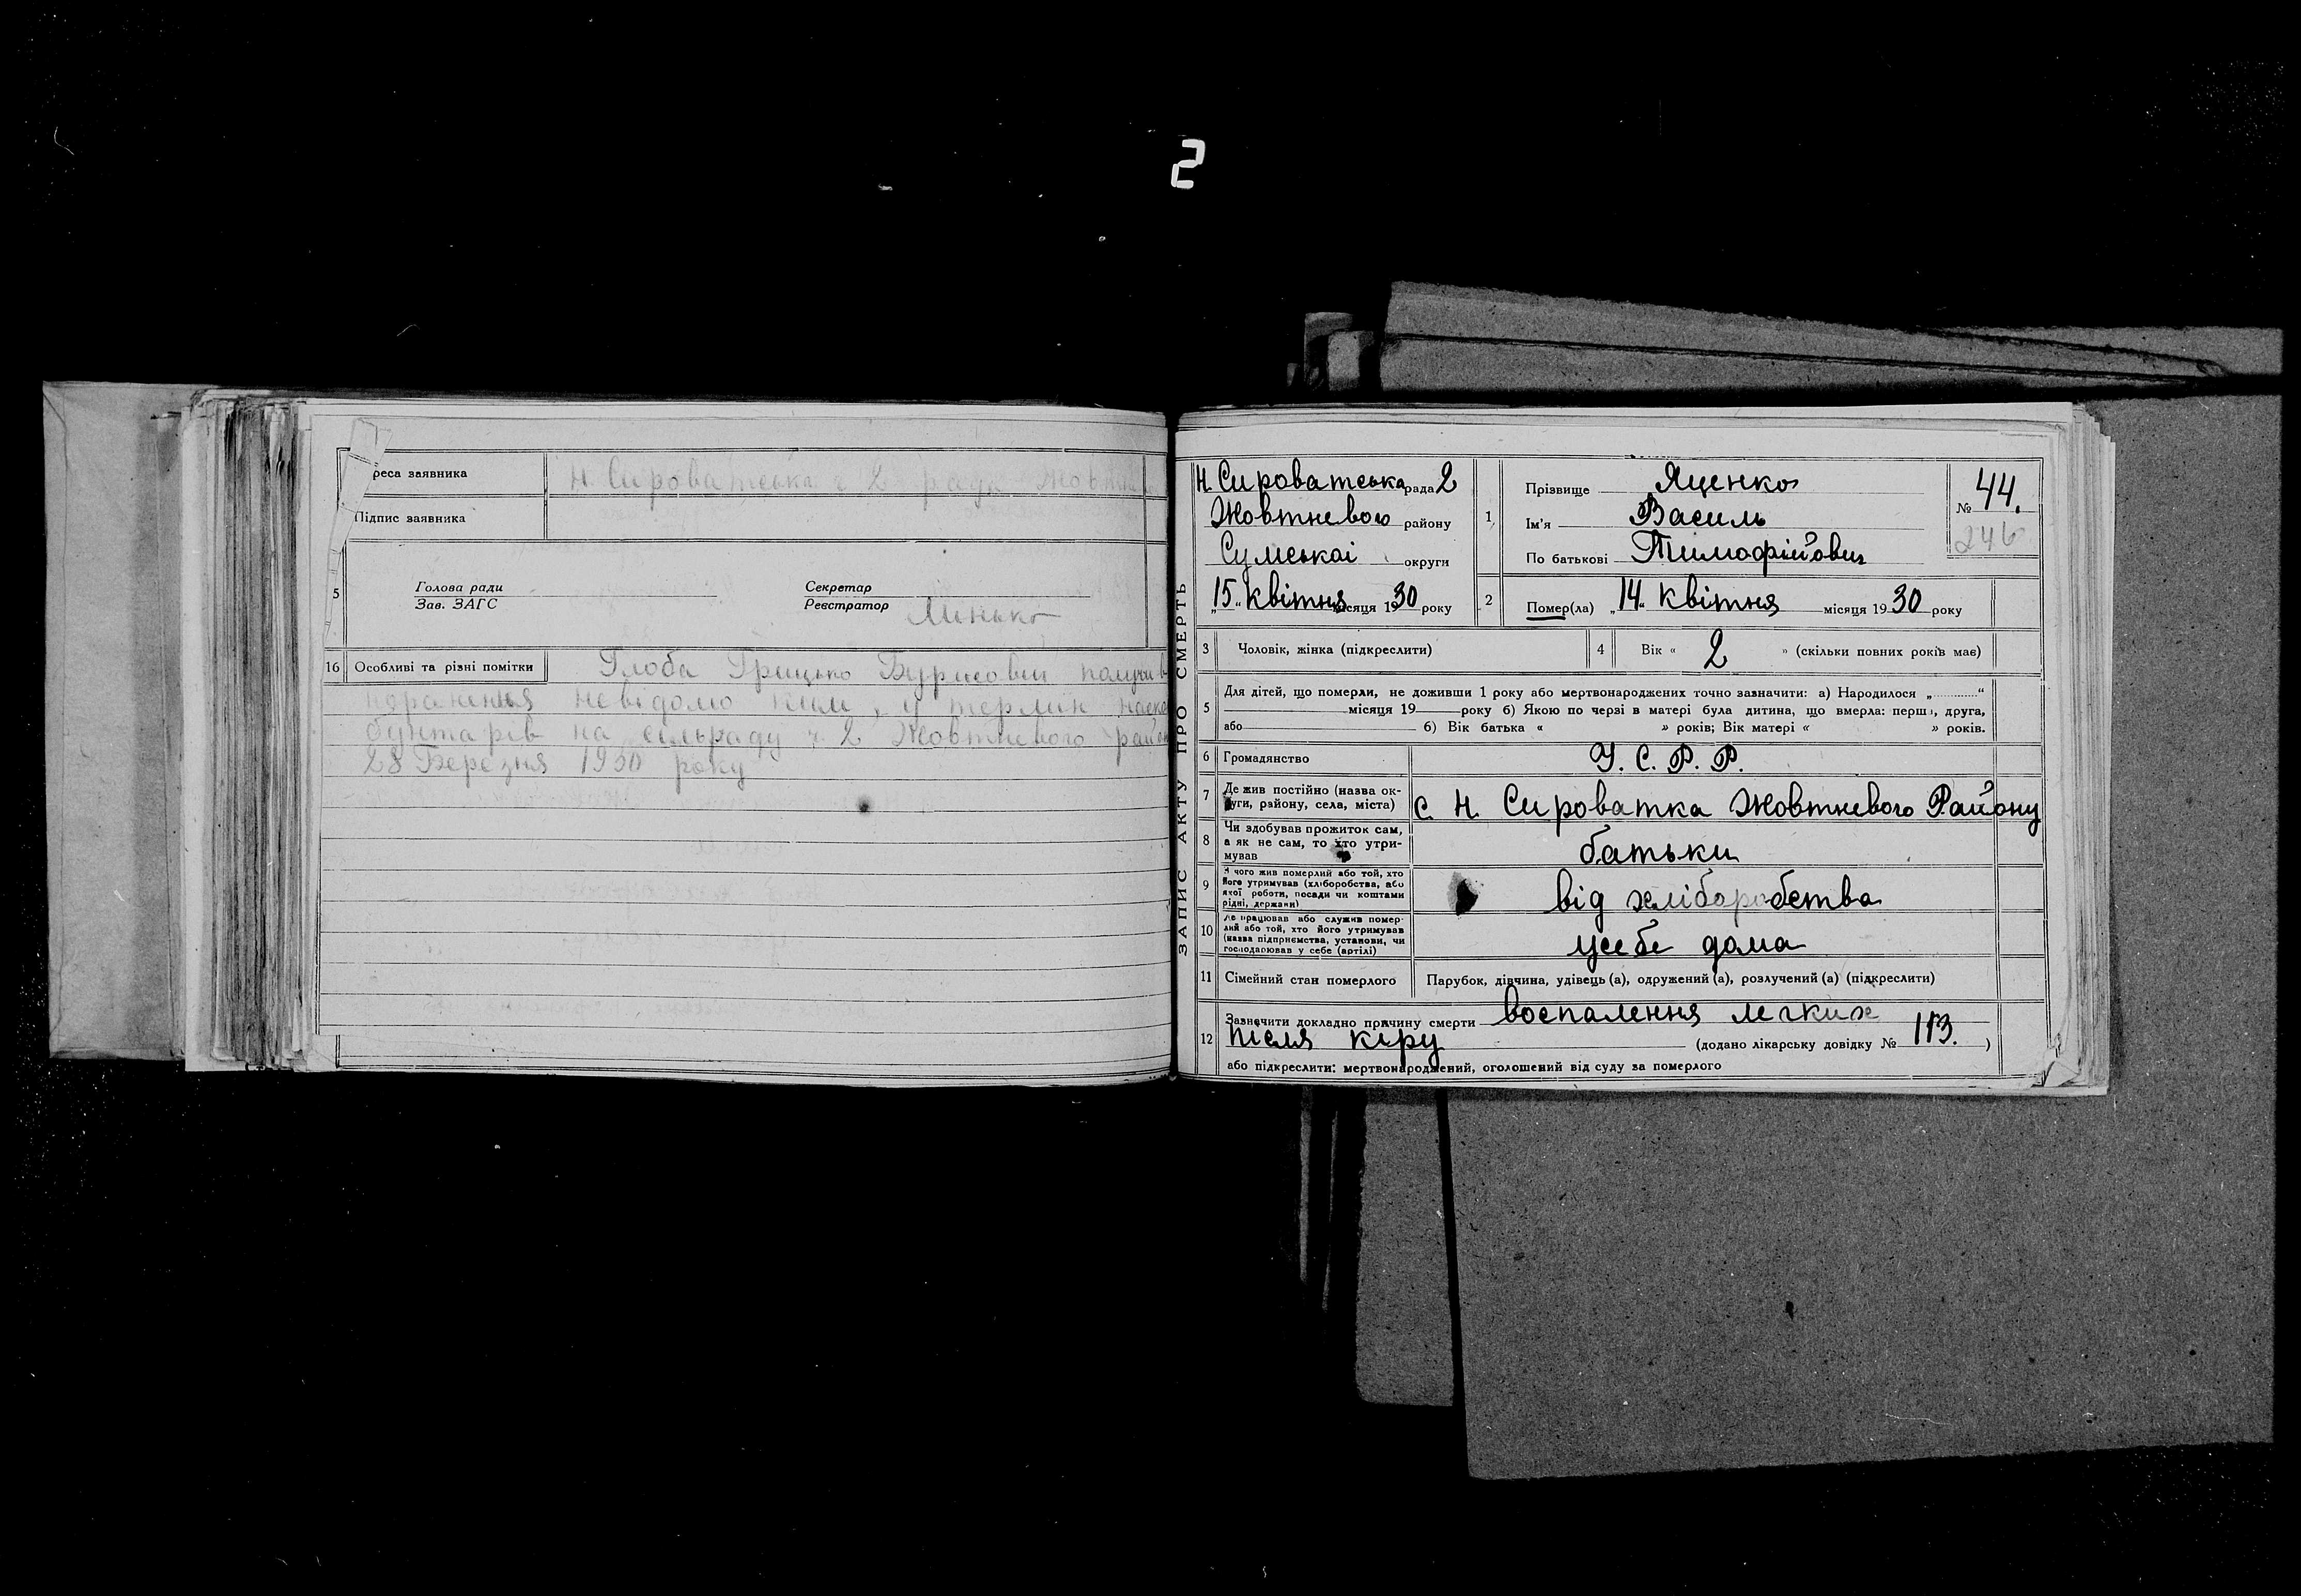 2
реса заявника Н. Сироватська ч 2 рада Жовтн
Підпис заявника
5
Голова ради
Зав. ЗАГС
Секретар
Реєстратор Минько
16 Особливі та різні помітки Глоба Грицько Бурисович получив
пораненння невідомо ким, у термін
бунтарів на сільраду ч. 2 Жовтневого район
28 Березня 1930 року
ЗАПИС АКТУ ПРО СМЕРТЬ
Н. Сироватська рада 2
Жовтневого району
Сумської округи
„15“ Квітня місяця 1930 року
1 Прізвище Яценко
Ім'я Василь
По батькові Тимофійович
№ 44.
246
2 Помер(ла) „14“ Квітня місяця 1930 року
3 Чоловік, жінка (підкреслити)
4 Вік « 2 » (скільки повних років має)
5 Для дітей, що померли, не доживши 1 року або мертвонароджених точно зазначити: а) Народилося „ “
місяця 19 року б) Якою по черзі в матері була дитина, що вмерла: перша, друга,
або б) Вік батька « » років; Вік матері « » років.
6 Громадянство У. С. Р. Р.
7 Де жив постійно (назва ок-
руги, району, села, міста) с. Н. Сироватка Жовтневого Району
8 Чи здобував прожиток сам,
а як не сам, то хто утри-
мував батьки
9 З чого жив померлий або той, хто
його утримував (хліборобства, або
якої роботи, посади чи коштами
рідні, держави) від хліборобства
10 Де працював або служив помер-
лий або той, хто його утримував
(назва підприємства, установи, чи
господарював у себе (артілі) усебе дома
11 Сімейний стан померлого Парубок, дівчина, удівець (а), одружений (а), розлучений (а) (підкреслити)
12 Зазначити докладно причину смерти воспалення легких
після кору (додано лікарську довідку № 113. )
або підкреслити: мертвонароджений, оголошений від суду за померлого